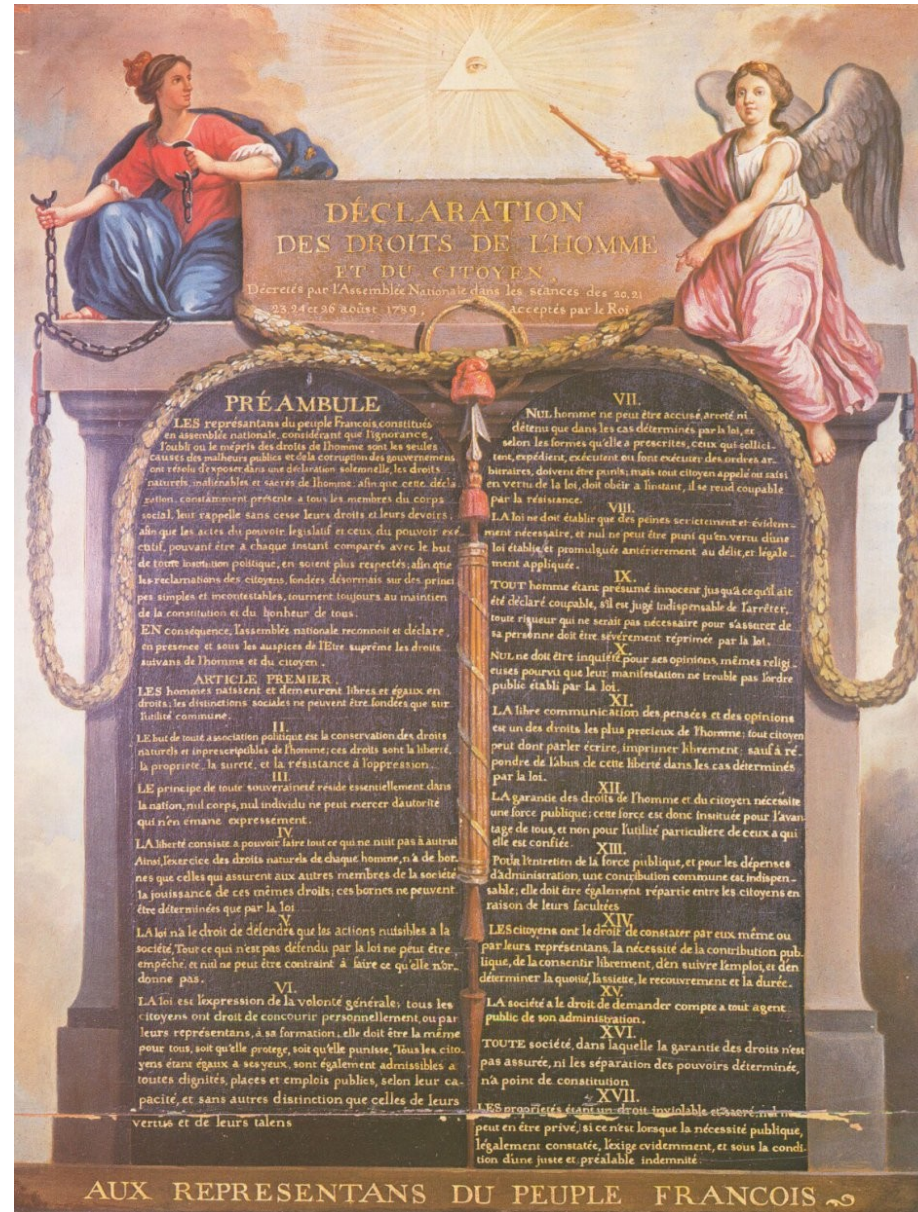 DÉCLARATION
DES DROITS DE L'HOMME
ET DU CITOYEN,
Décretés par l'Assemblée Nationale dans les séances des 20, 21
23, 24 et 26 aoûst 1789, acceptés par le Roi
PRÉAMBULE
LES représentans du peuple François, constitués
en assemblée nationale, considérant que l'ignorance,
l'oubli ou le mépris des droits de l'homme sont les seules
causes des malheurs publics et de la corruption des gouvernemens
ont résolu d'exposer, dans une déclaration solemnelle, les droits
naturels, inaliénables et sacrés de l'homme; afin que cette décla-
ration, constamment présente a tous les membres du corps
social, leur rappelle sans cesse leurs droits et leurs devoirs;
afin que les actes du pouvoir législatif et ceux du pouvoir exé-
cutif, pouvant être à chaque instant comparés avec le but
de toute institution politique, en soient plus respectés; afin que
les reclamations des citoyens, fondées désormais sur des princi-
pes simples et incontestables, tournent toujours au maintien
de la constitution et du bonheur de tous.
EN conséquence, l'assemblée nationale reconnoit et déclare,
en presence et sous les auspices de l'Etre suprême les droits
suivans de l'homme et du citoyen.
ARTICLE PREMIER.
LES hommes naissent et demeurent libres et égaux en
droits; les distinctions sociales ne peuvent être fondées que sur
l'utilité commune.
II.
LE but de toute association politique est la conservation des droits
naturels et inprescriptibles de l'homme; ces droits sont la liberté,
la propriété, la sureté, et la résistance à l'oppression.
III.
LE principe de toute souveraineté réside essentiellement dans
la nation, nul corps, nul individu ne peut exercer d'autorité
qui n'en émane expressement.
IV.
LA liberté consiste a pouvoir faire tout ce qui ne nuit pas à autrui
Ainsi, l'exercice des droits naturels de chaque homme, n'a de bor-
nes que celles qui assurent aux autres membres de la société
la jouissance de ces mêmes droits; ces bornes ne peuvent
être déterminées que par la loi
V.
LA loi n'a le droit de défendre que les actions nuisibles a la
société, Tout ce qui n'est pas défendu par la loi ne peut être
empêché, et nul ne peut être contraint à faire ce qu'elle n'or-
donne pas.
VI.
LA loi est l'expression de la volonté générale; tous les
citoyens ont droit de concourir personnellement, ou par
leurs représentans, à sa formation; elle doit être la même
pour tous, soit qu'elle protege, soit qu'elle punisse, Tous les cito-
yens étant égaux à ses yeux, sont également admissibles a
toutes dignités, places et emplois publics, selon leur ca-
pacité, et sans autres distinction que celles de leurs
vertus et de leurs talens
VII.
NUL homme ne peut être accusé, arreté ni
détenu que dans les cas déterminés par la loi, et
selon les formes qu'elle a prescrites, ceux qui sollici-
tent, expédient, exécutent ou font exécuter des ordres ar-
bitraires, doivent être punis; mais tout citoyen appelé ou saisi
en vertu de la loi, doit obéir a l'instant, il se rend coupable
par la résistance.
VIII.
LA loi ne doit établir que des peines strictement et évidem-
ment nécessaire, et nul ne peut être puni qu'en vertu d'une
loi établie et promulguée antérierement au délit, et légale-
ment appliquée.
IX.
TOUT homme étant présumé innocent jusqu'à ce qu'il ait
été déclaré coupable, s'il est jugé indispensable de l'arrêter,
toute rigueur qui ne serait pas nécessaire pour s'assurer de
sa personne doit être sévèrement réprimée par la loi.
X.
NUL ne doit être inquiété pour ses opinions, mêmes religi-
euses pourvu que leur manifestation ne trouble pas l'ordre
public établi par la loi.
XI.
LA libre communication des pensées et des opinions
est un des droits les plus precieux de l'homme; tout citoyen
peut dont parler écrire, imprimer librement; sauf à ré-
pondre de l'abus de cette liberté dans les cas déterminés
par la loi.
XII.
LA garantie des droits de l'homme et du citoyen nécessite
une force publique; cette force est donc instituée pour l'avan-
tage de tous, et non pour l'utilité particuliere de ceux a qui
elle est confiée.
XIII.
POUR l'entretien de la force publique, et pour les dépenses
d'administration, une contribution commune est indispen-
sable; elle doit être également répartie entre les citoyens en
raison de leurs facultées
XIV.
LES citoyens ont le droit de constater par eux même ou
par leurs représentans, la nécessité de la contribution pub-
lique, de la consentir librement, d'en suivre l'emploi, et d'en
déterminer la quotité, l'assiette, le recouvrement et la durée.
XV.
LA société a le droit de demander compte a tout agent
public de son administration.
XVI.
TOUTE société, dans laquelle la garantie des droits n'est
pas assurée, ni les séparation des pouvoirs déterminée,
n'a point de constitution
XVII.
LES propriétés étant un droit inviolable et sacré, nul ne
peut en être privé, si ce n'est lorsque la nécessité publique,
légalement constatée, l'exige evidemment, et sous la condi-
tion d'une juste et préalable indemnité.
AUX REPRESENTANS DU PEUPLE FRANCOIS